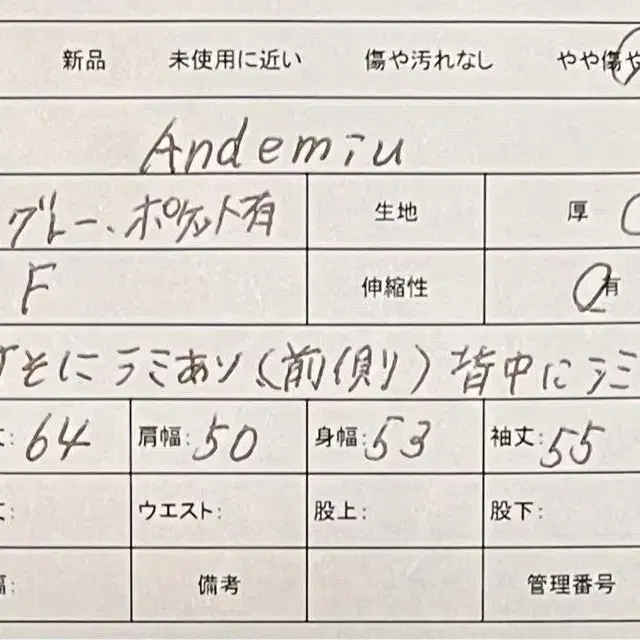 新品 未使用に近い 傷や汚れなし やや傷や
Andemiu
グレー、ポケット有 生地 厚
F 伸縮性 有
そにシミあり(前側)背中にシミ
丈: 64 肩幅: 50 身幅: 53 袖丈: 55
丈: ウエスト: 股上: 股下:
幅: 備考 管理番号